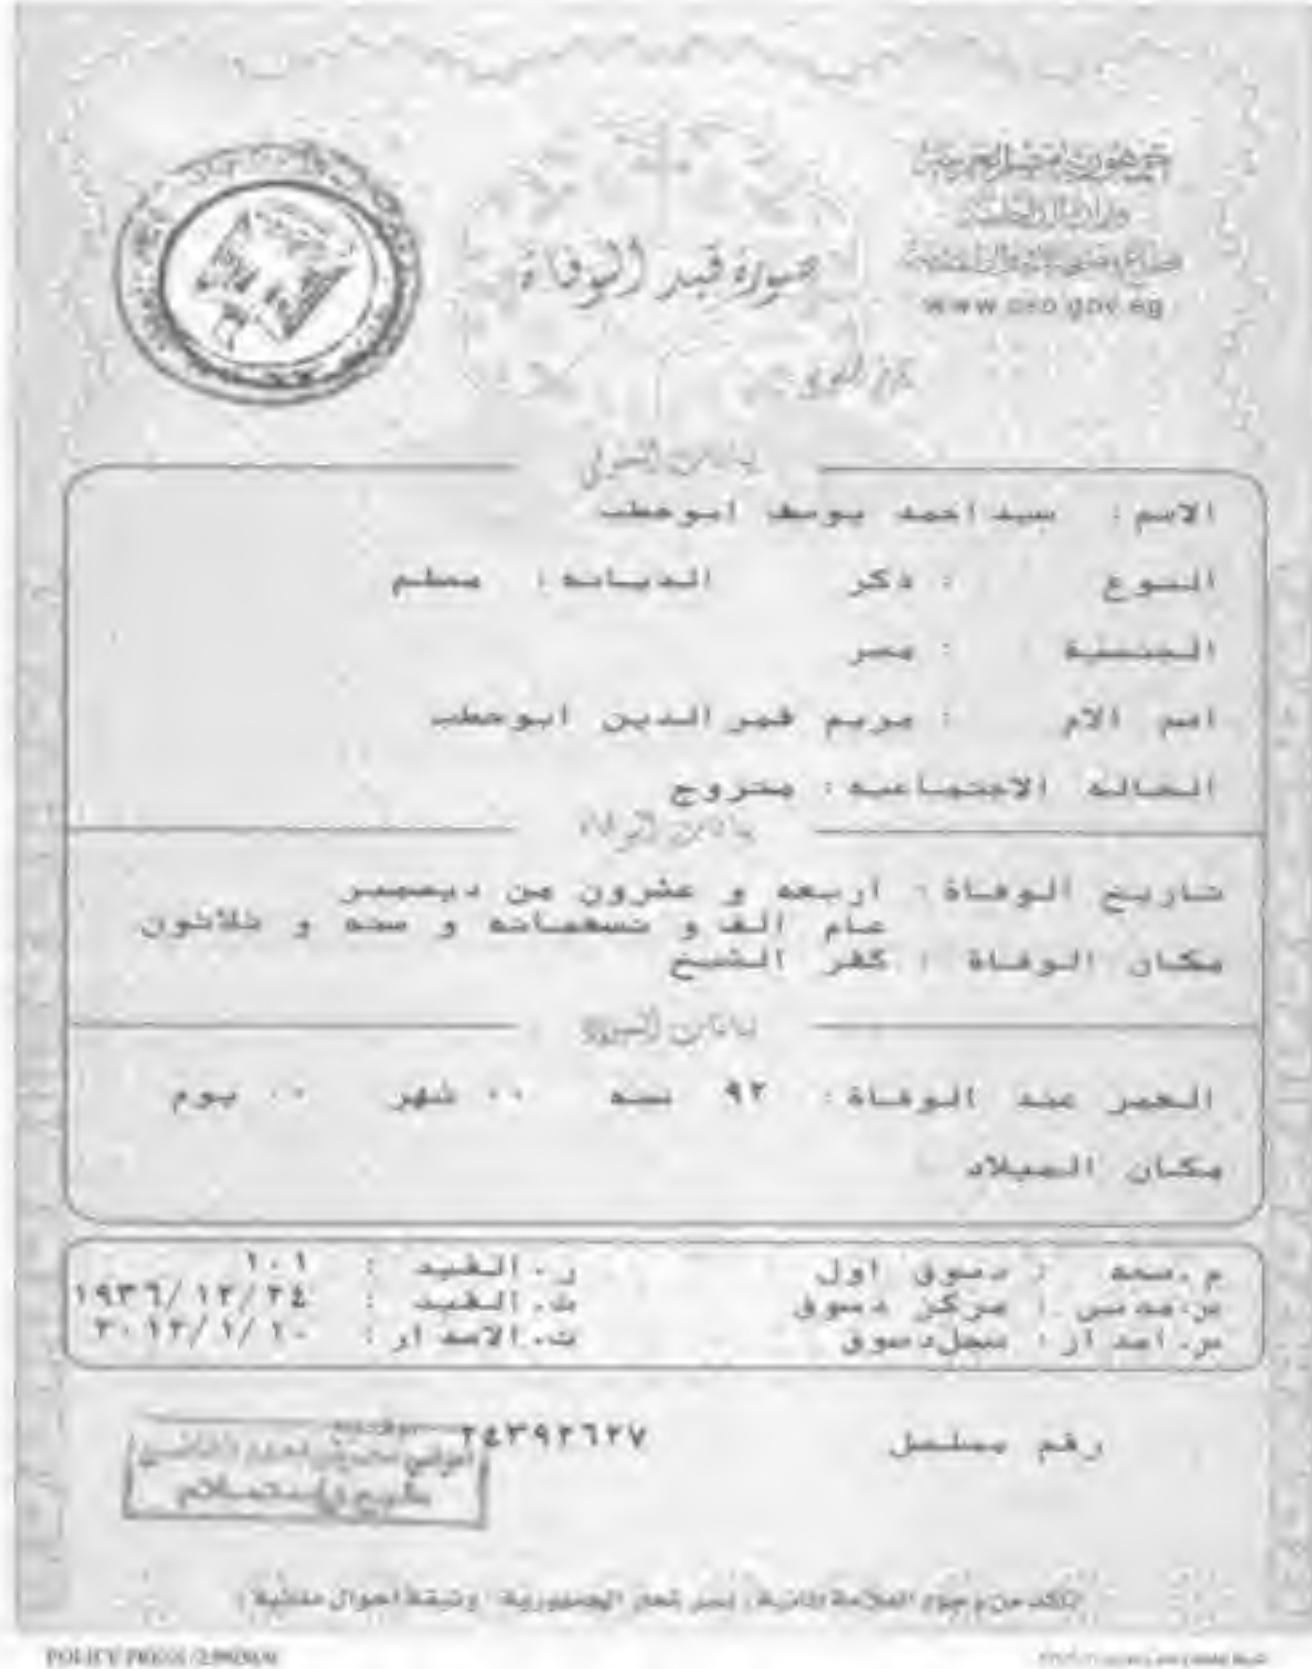 جمهورية مصر العربية
وزارة الداخلية
www.cso.gov.eg
صورة قيد الوفاة
بيانات المتوفى
الاسم : سيد احمد يوسف ابوحطب
النوع : ذكر الديانه : مسلم
الجنسية : مصر
اسم الام : مريم قمر الدين ابوحطب
الحاله الاجتماعيه : متزوج
بيانات الوفاة
تاريخ الوفاة : اربعه و عشرون من ديسمبر
عام الف و تسعمائه و سته و ثلاثون
مكان الوفاة : كفر الشيخ
بيانات
العمر عند الوفاة : ٩٢ سنه ٠٠ شهر ٠٠ يوم
مكان الميلاد
م.صحه : دسوق اول ر.القيد : ١٠١
س.مدنى : مركز دسوق ت.القيد : ١٩٣٦/١٢/٢٤
س.اصدار : سجل دسوق ت.الاصدار : ٢٠١٣/١/١٠
رقم مسلسل ٢٤٣٩٢٦٢٧
تأكد من وجود العلامة المائية : نسر شعار الجمهورية - وثيقة احوال مدنية
POLICE PRESS